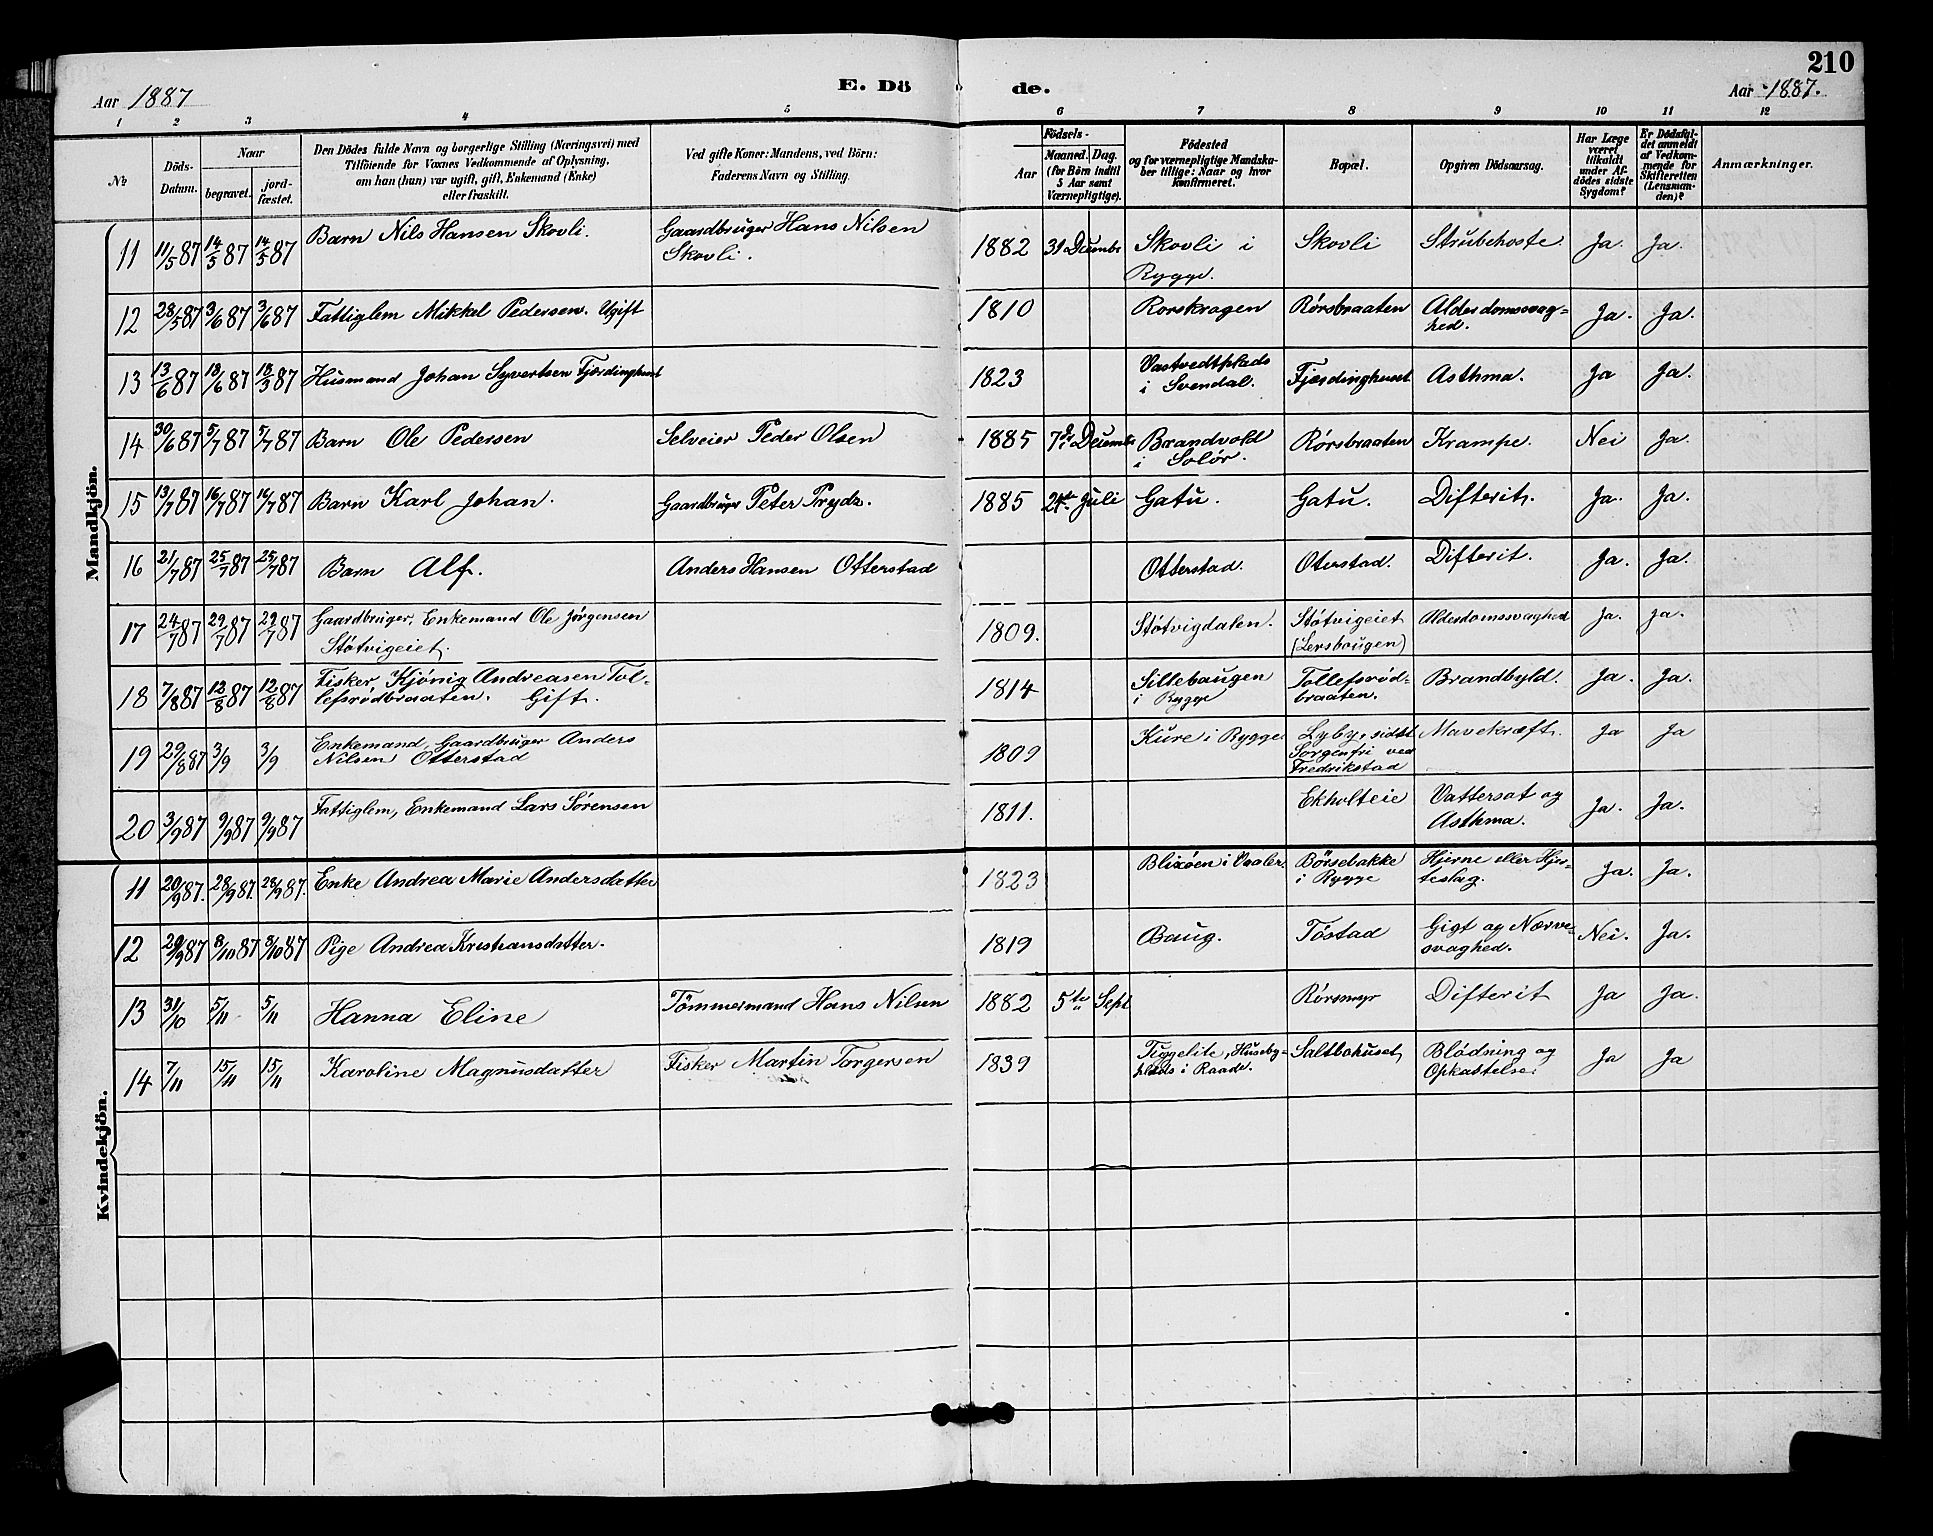 210
Aar 1887
E. Dö de.
Aar 1887.
1 2 3 4 5 6 7 8 9 10 11 12
№
Döds-Datum.
Naar
begravet.
jord-fæstet.
Den Dödes fulde Navn og borgerlige Stilling (Næringsvei) med
Tilföiende for Voxnes Vedkommende af Oplysning,
om han (hun) var ugift, gift, Enkemand (Enke)
eller fraskilt.
Ved gifte Koner: Mandens, ved Börn:
Faderens Navn og Stilling.
Födsels-
Aar
Maaned. Dag.
(for Börn indtil
5 Aar samt
Værnepligtige).
Födested
og for værnepligtige Mandska-
ber tillige: Naar og hvor
konfirmeret.
Bopæl.
Opgiven Dödsaarsag.
Har Læge
været
tilkaldt
under Af-
dödes sidste
Sygdom?
Er Dödsfal-
det anmeldt
af Vedkom-
mende for
Skifteretten
(Lensman-
den)?
Anmærkninger.
Mandkjön.
11 11/5 87 14/5 87 14/5 87 Barn Nils Hansen Skovli. Gaardbruger Hans Nilsen 1882 31 Decembr Skovli i Skovli Strubehoste Ja. Ja.
Skovli. Rygge.
12 28/5 87 3/6 87 3/6 87 Fattiglem Mikkel Pedersen. Ugift 1810 Rorskragen Rørsbraaten Aldesdomssvag= Ja. Ja.
hed.
13 13/6 87 18/6 87 18/3 87 Husmand Johan Syvertsen Fjærdinghuset 1823 Vastvedtplads Fjærdinghuset Asthma. Ja Ja.
i Svendal.
14 30/6 87 5/7 87 5/7 87 Barn Ole Pedersen Selveier Peder Olsen 1885 7de Decembr Brandvold Rørsbraaten Krampe. Nei Ja.
i Solør.
15 13/7 87 16/7 87 16/7 87 Barn Karl Johan. Gaardbruger Peter Prydz. 1885 24de Juli Gatu. Gatu. Difterit, Ja. Ja.
16 21/7 87 25/7 87 25/7 87 Barn Alf. Anders Hansen Otterstad Otterstad. Oterstad. Difterit. Ja. Ja.
17 24/7 87 29/7 87 29/7 87 Gaardbruger, Enkemand Ole Jørgensen 1809. Støtvigdalen. Støtvigeiet Aldesdomssvaghed Ja. Ja.
Støtvigeiet. (Lersbaugen)
18 7/8 87 12/8 87 12/8 87 Fisker Kjønig Andreasen Tol- 1814 Sillebaugen Tollefsrød- Brandbyld. Ja. Ja.
lefsrødbraaten. Gift. i Rygge braaten.
19 29/8 87 3/9 3/9 Enkemand, Gaardbruger Anders 1809 Kure i Rygge Lyby, sidst Mavekræft. Ja Ja
Nilsen Otterstad Sorgenfri ved
Fredrikstad
20 3/9 87 9/9 87 9/9 87 Fattiglem, Enkemand Lars Sørensen 1811. Ekholteie Vattersot og Ja. Ja.
Asthma.
Kvindekjön.
11 20/9 87. 28/9 87. 28/9 87. Enke Andrea Marie Andersdatter 1823 Blixøen i Vaaler. Börsebakke Hjerne eller Hjer- Ja. Ja.
i Rygge teslag.
12 29/9 87 8/10 87 8/10 87 Pige Andrea Kristiansdatter. 1819 Baug. Töstad Gigt og Nærve- Nei. Ja.
svaghed.
13 31/10 5/11 5/11 Hanna Eline Tömmermand Hans Nilsen 1882 5te Sept Rørsmyr Difterit Ja Ja.
14 7/11 15/11 15/11 Karoline Magnusdatter Fisker Martin Torgersen 1839 Tiggelite, Huseby- Saltbohuset Blödning og Ja Ja
plads i Raade. Opkastelse.